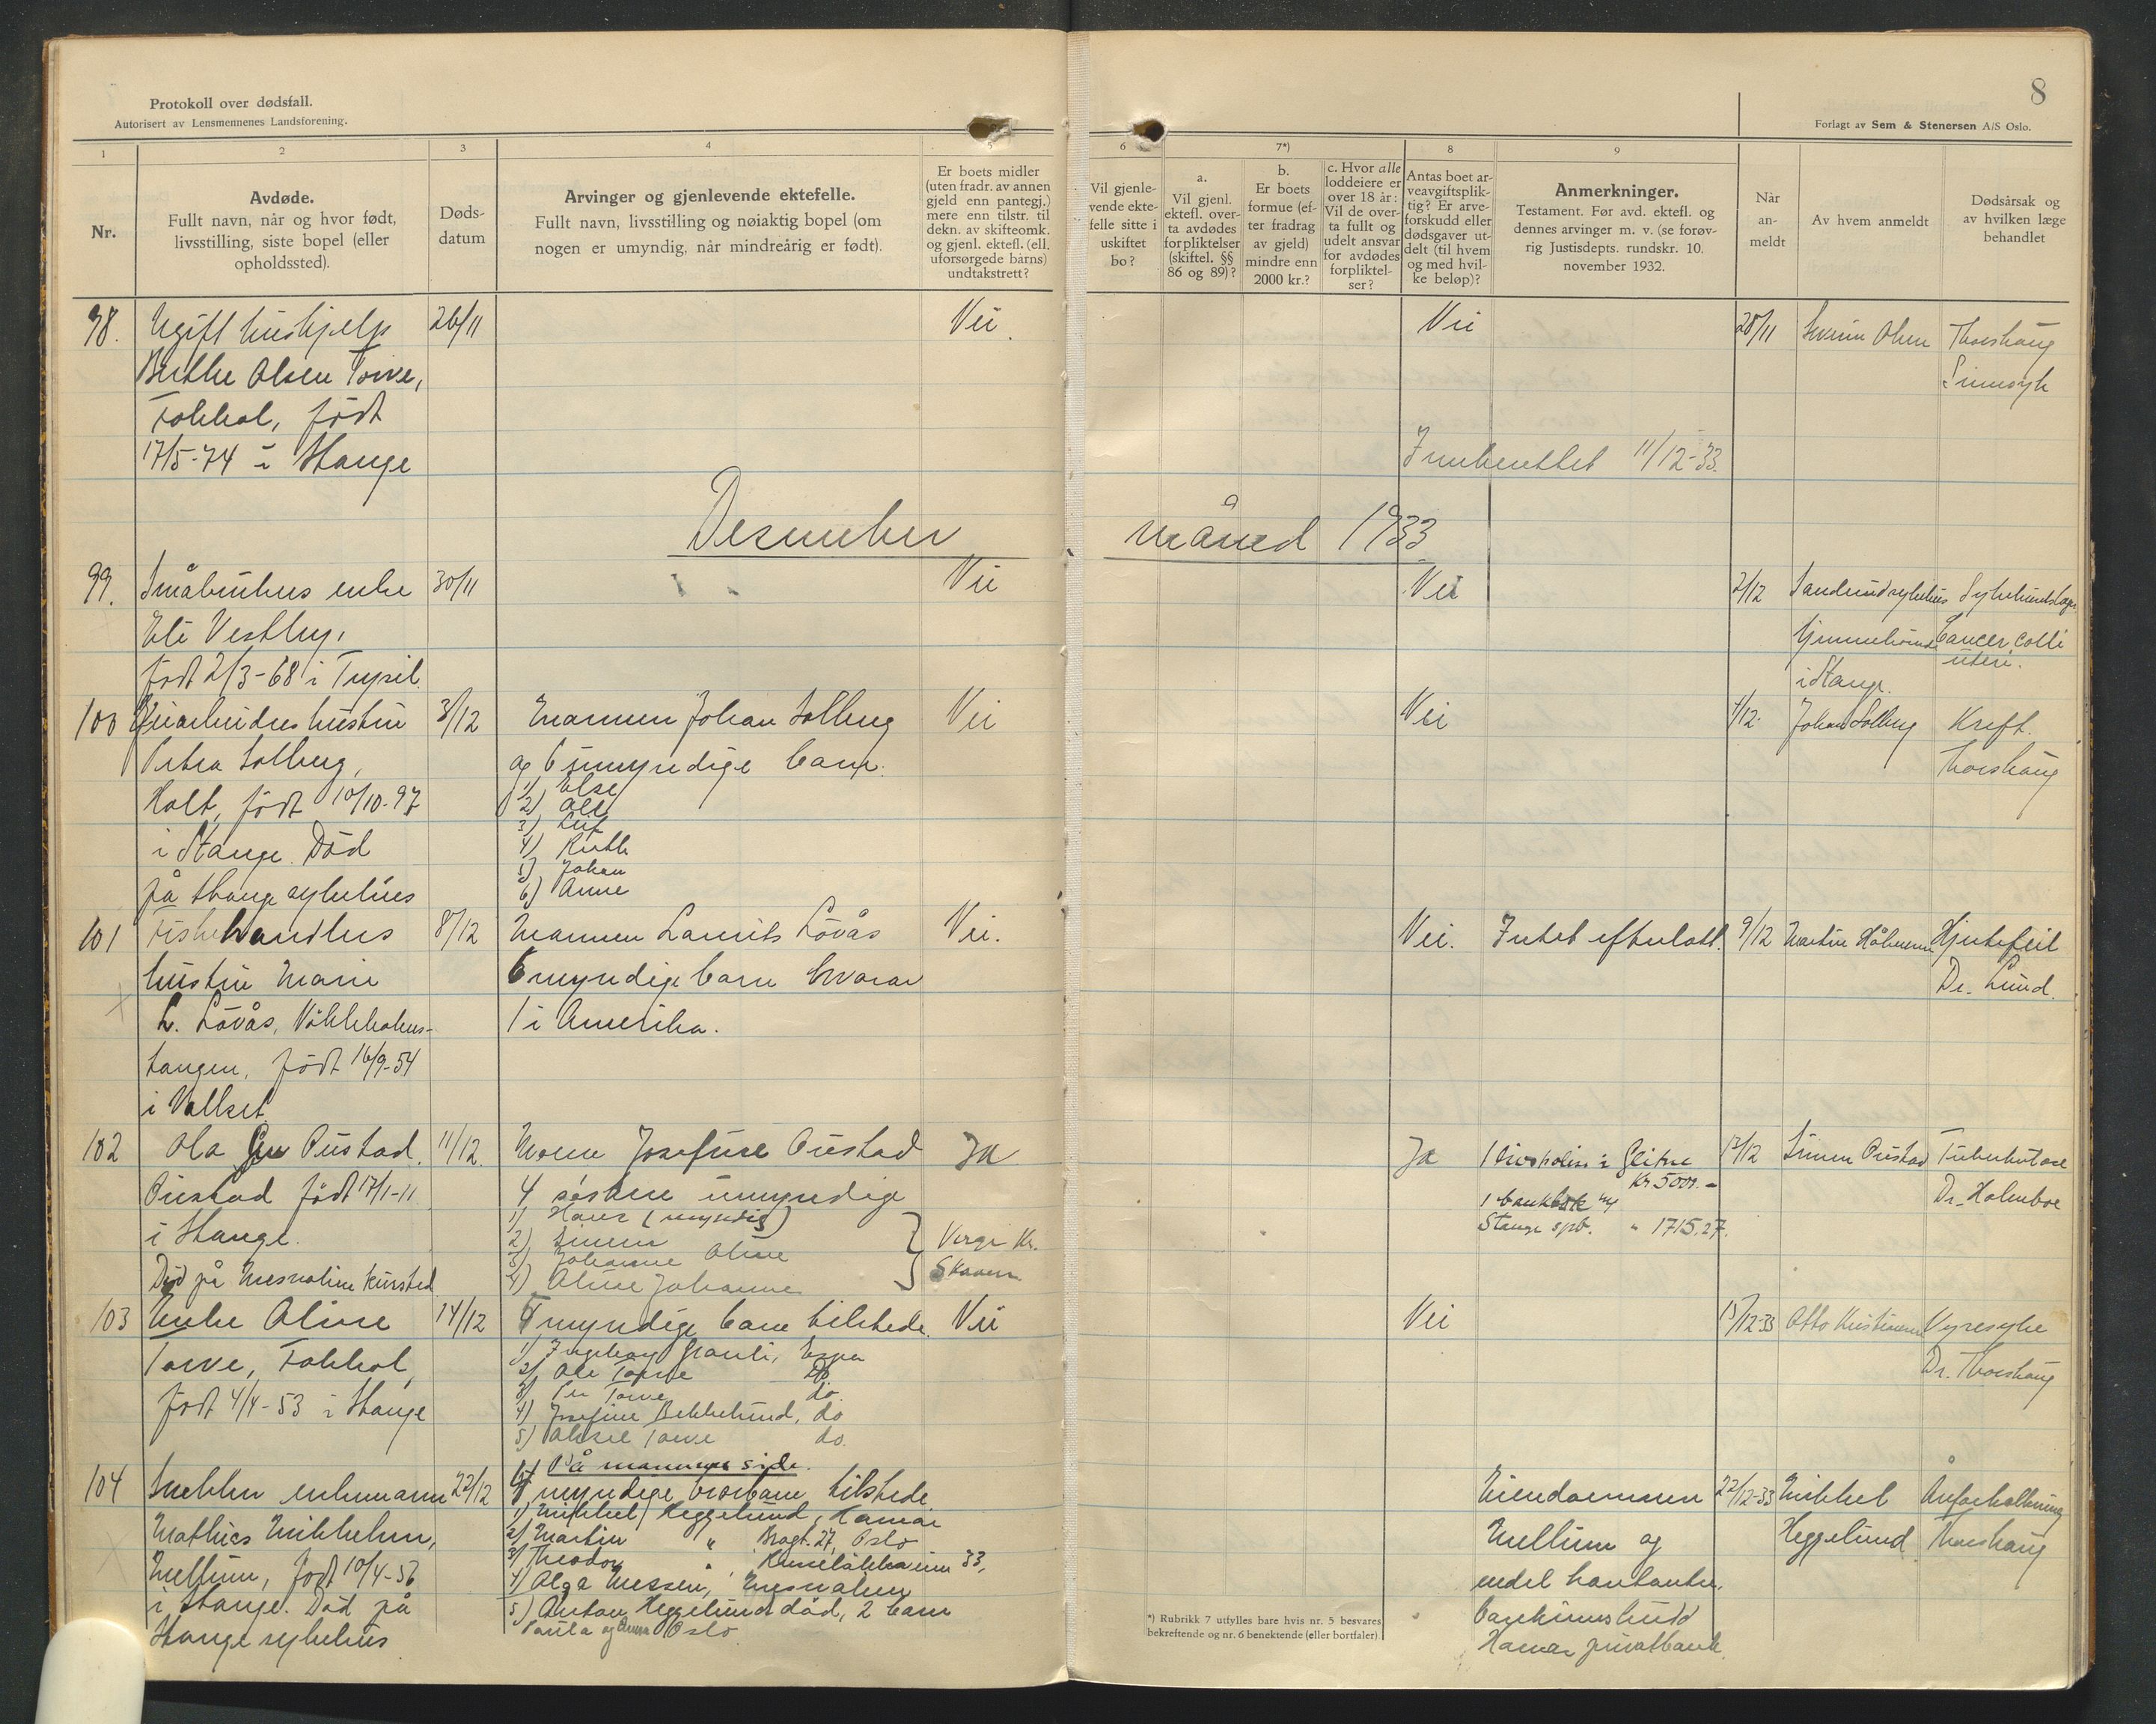 8
Protokoll over dødsfall.
Autorisert av Lensmennenes Landsforening.
Forlagt av Sem & Stenersen A/S Oslo.
1
2
3
4
5
6
7*)
8
9
Nr.
Avdøde.
Fullt navn, når og hvor født,
livsstilling, siste bopel (eller
opholdssted).
Døds-
datum
Arvinger og gjenlevende ektefelle.
Fullt navn, livsstilling og nøiaktig bopel (om
nogen er umyndig, når mindreårig er født).
Er boets midler
(uten fradr. av annen
gjeld enn pantegj.)
mere enn tilstr. til
dekn. av skifteomk.
og gjenl. ektefl. (ell.
uforsørgede barns)
undtakstrett?
Vil gjenle-
vende ekte-
felle sitte i
uskiftet
bo?
a.
Vil gjenl.
ektefl. over-
ta avdødes
forpliktelser
(skiftel. §§
86 og 89)?
b.
Er boets
formue (ef-
ter fradrag
av gjeld)
mindre enn
2000 kr.?
c. Hvor alle
loddeiere er
over 18 år:
Vil de over-
ta fullt og
udelt ansvar
for avdødes
forpliktel-
ser?
Antas boet ar-
veavgiftsplik-
tig? Er arve-
forskudd eller
dødsgaver ut-
delt (til hvem
og med hvil-
ke beløp)?
Anmerkninger.
Testament. Før avd. ektefl. og
dennes arvinger m. v. (se forøv-
rig Justisdepts. rundskr. 10.
november 1932.
Når
an-
meldt
Av hvem anmeldt
Dødsårsak og
av hvilken læge
behandlet
98.
Ugift hushjelp
Berthe Olsen Torve,
Tokkol, født
17/5-74 i Stange
26/11
Nei.
Nei
28/11
Severin Olsen
Thorshaug
Sinnsyk
Innberettet 11/12-33.
Desember måned 1933
99.
Småbrukers enke
Eli Vestby,
født 2/3-68 i Trysil.
30/11
Nei
Nei
2/12
Sanderud sykehus
i Stange.
Cancer colli
uteri.
100
Petra Solberg,
Holt, født 10/10-97
i Stange. Død
på Stange sykehus
3/12
Mannen Johan Solberg
og 6 umyndige barn.
1) Else
2) Alf
3) Leif
4) Ruth
5) Johan
6) Anne
Nei
Nei
4/12.
Johan Solberg
Kreft.
Thorshaug
101
Fiskehandlers
hustru Marie
L. Løvås,
tangen, født 16/9-54
i Vallset
8/12
Mannen Laurits Løvås
6 myndige barn hvorav
1 i Amerika.
Nei.
Nei.
Intet efterlatt.
9/12
Hjertefeil
Dr. Lund.
102
Ola Gu Pustad.
Pustad født 17/1-11
i Stange.
Død på Mesnalien kursted
11/12.
Moren Josefine Pustad
4 søsken umyndige
1) Hans (myndig)
2) Simen
3) Johanne Oline
4) Aline Johanne
Verge Kr.
Skaaren
Ja
Ja
1 livspolise i Gjensidige
Kr 5000.-
1 bankbok
Stange spb. " 1715,27.
12/12
Simen Pustad
Tuberkulose
Dr. Holmboe
103
Enke Oline
Torve, Tokkol,
født 4/4-53 i Stange
14/12
5 myndige barn tilstede.
1) Ingeborg Granli, Espa
2) Ole Torve Do
3) Per Torve do.
4) Josefine Bekkelund, do
5) Aksel Torve do.
Nei
Nei
15/12-33
Otto Kristiansen
Nyresyke
Dr. Thorshaug
104
Snekker enkemann
Mathias Mikkelsen,
Mellum, født 10/4-56
i Stange. Død på
Stange sykehus
22/12
På mannens side.
myndige brorbarn tilstede
1) Mikkel Heggelund, Hamar
2) Martin " Bragt. 27, Oslo
3) Theodor " 33,
4) Olga Nessen, Mesnalien
5) Anton Heggelund død, 2 barn
Paula og Anna Oslo.
Eiendommen
Mellum og
endel kontanter.
Hamar privatbank.
22/12-33
Mikkel
Heggelund
Åreforkalkning
Thorshaug
*) Rubrikk 7 utfylles bare hvis nr. 5 besvares
bekreftende og nr. 6 benektende (eller bortfaler).